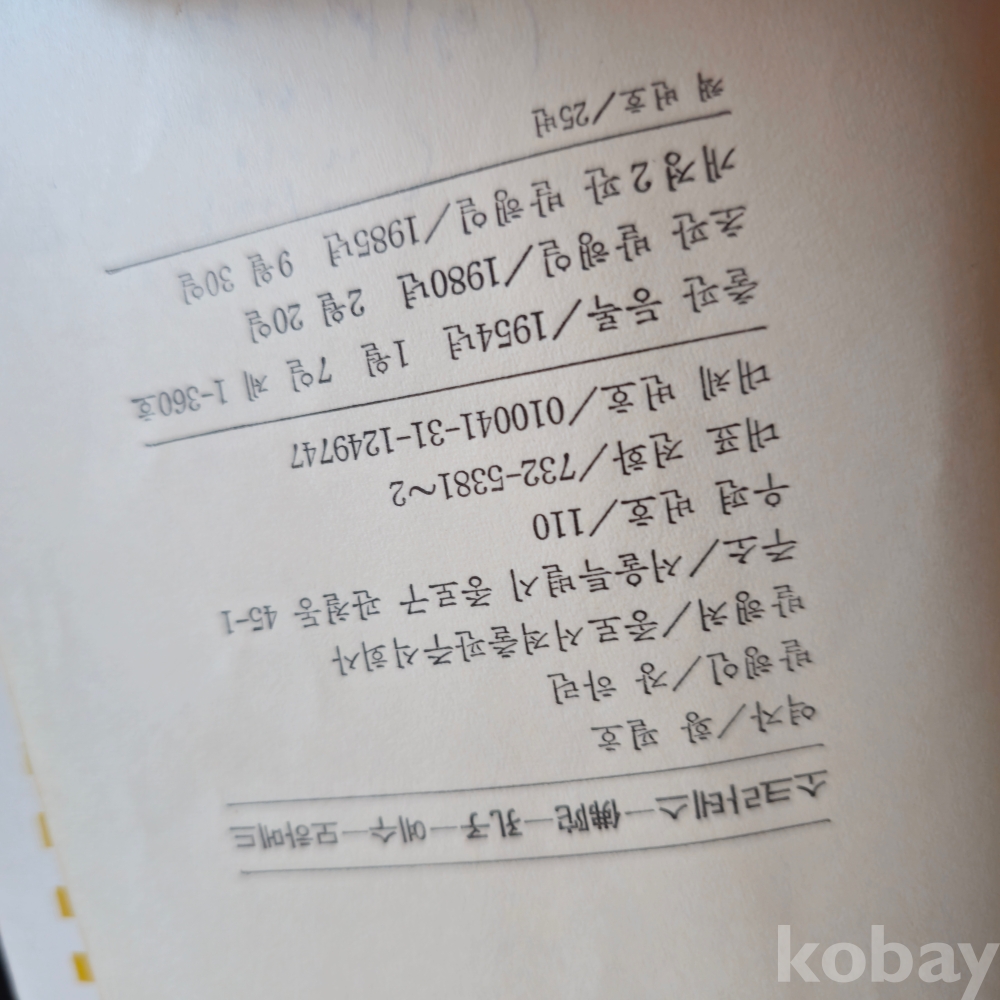 소크라테스―佛陀―孔子―예수―모하메드
역자/황 필호
발행인/장 하린
발행처/종로서적출판주식회사
주소/서울특별시 종로구 관철동 45-1
우편 번호/110
대표 전화/732-5381~2
대체 번호/010041-31-1249747
출판 등록/1954년 1월 7일 제 1-360호
초판 발행일/1980년 2월 20일
개정2판 발행일/1985년 9월 30일
책 번호/25번
kobay